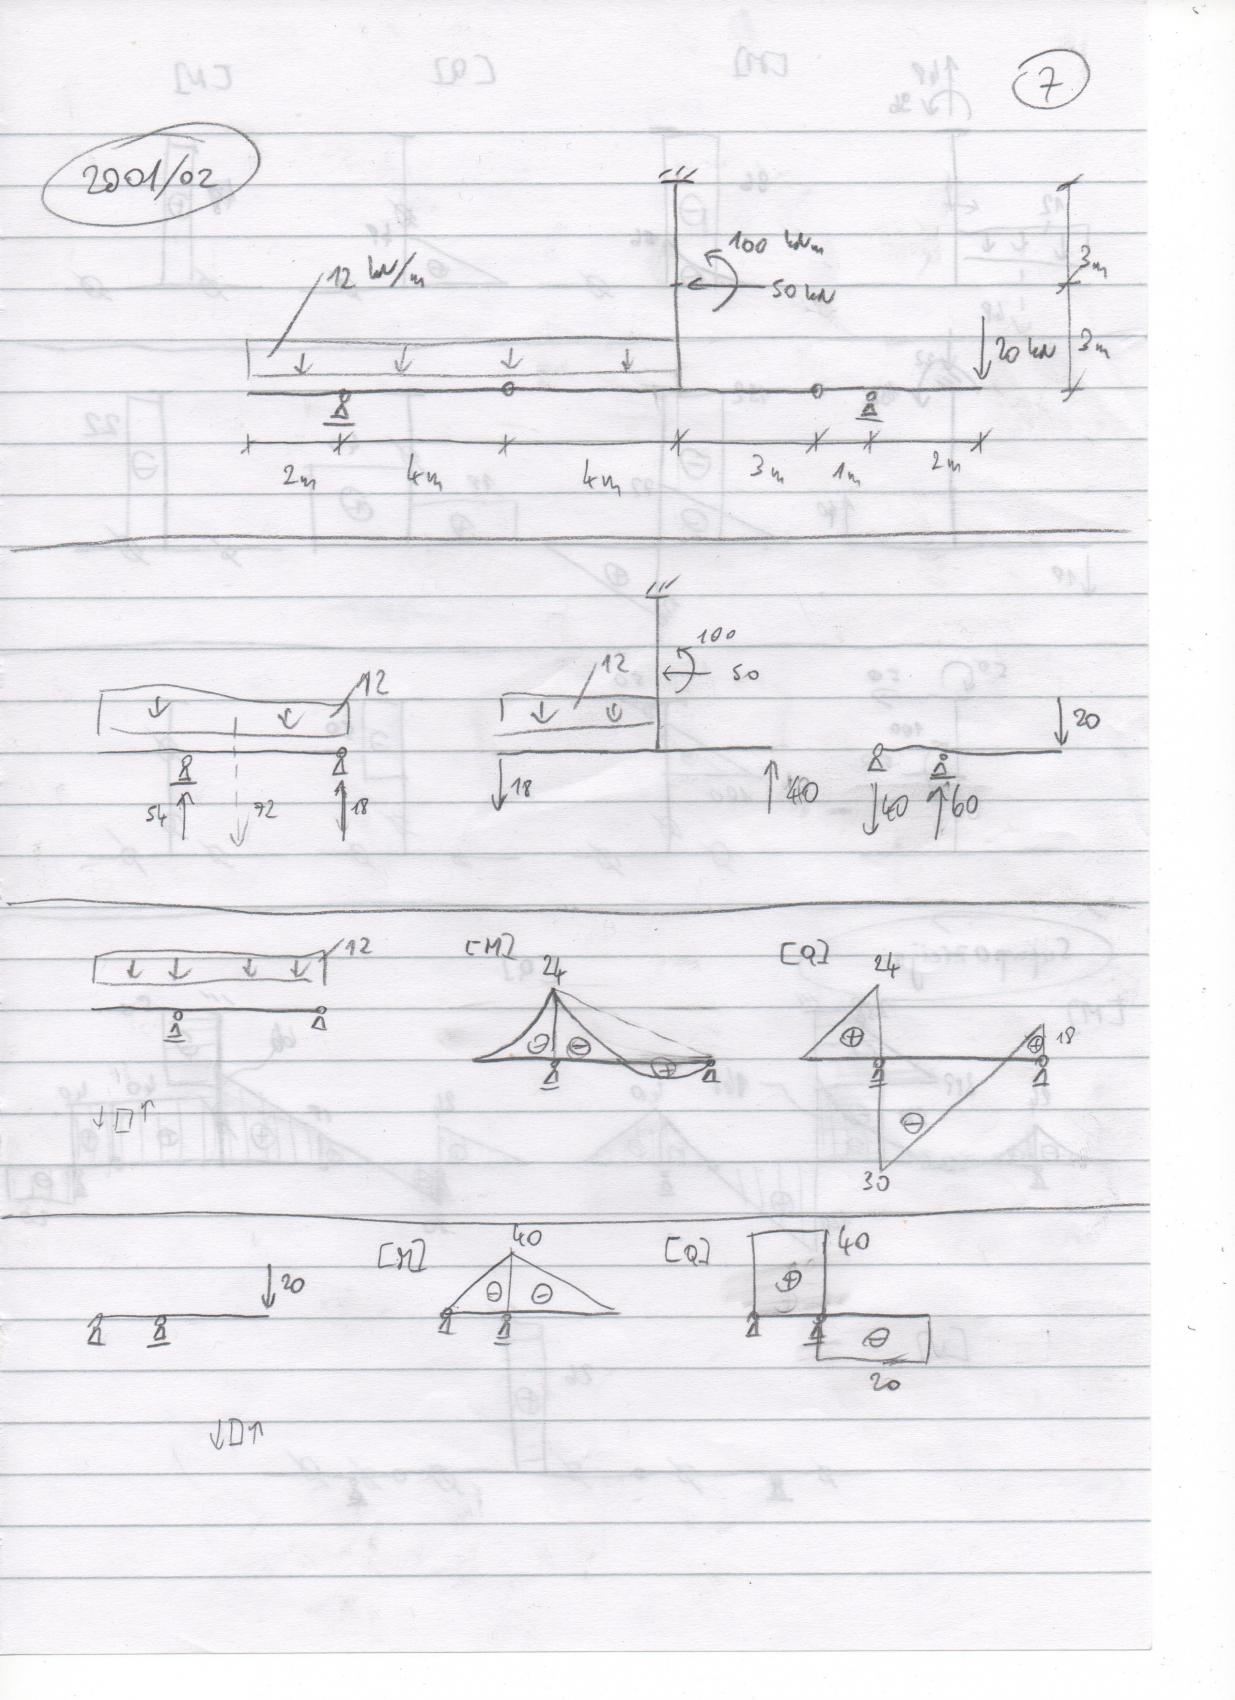 7
2001/02
100 kNm
12 kN/m
50 kN
3m
20 kN
3m
2m 4m 4m 3m 1m 2m
100
12 12 50
20
54 72 18 18 40 40 60
12 [M] 24 [Q] 24
18
30
20 [M] 40 [Q] 40
20